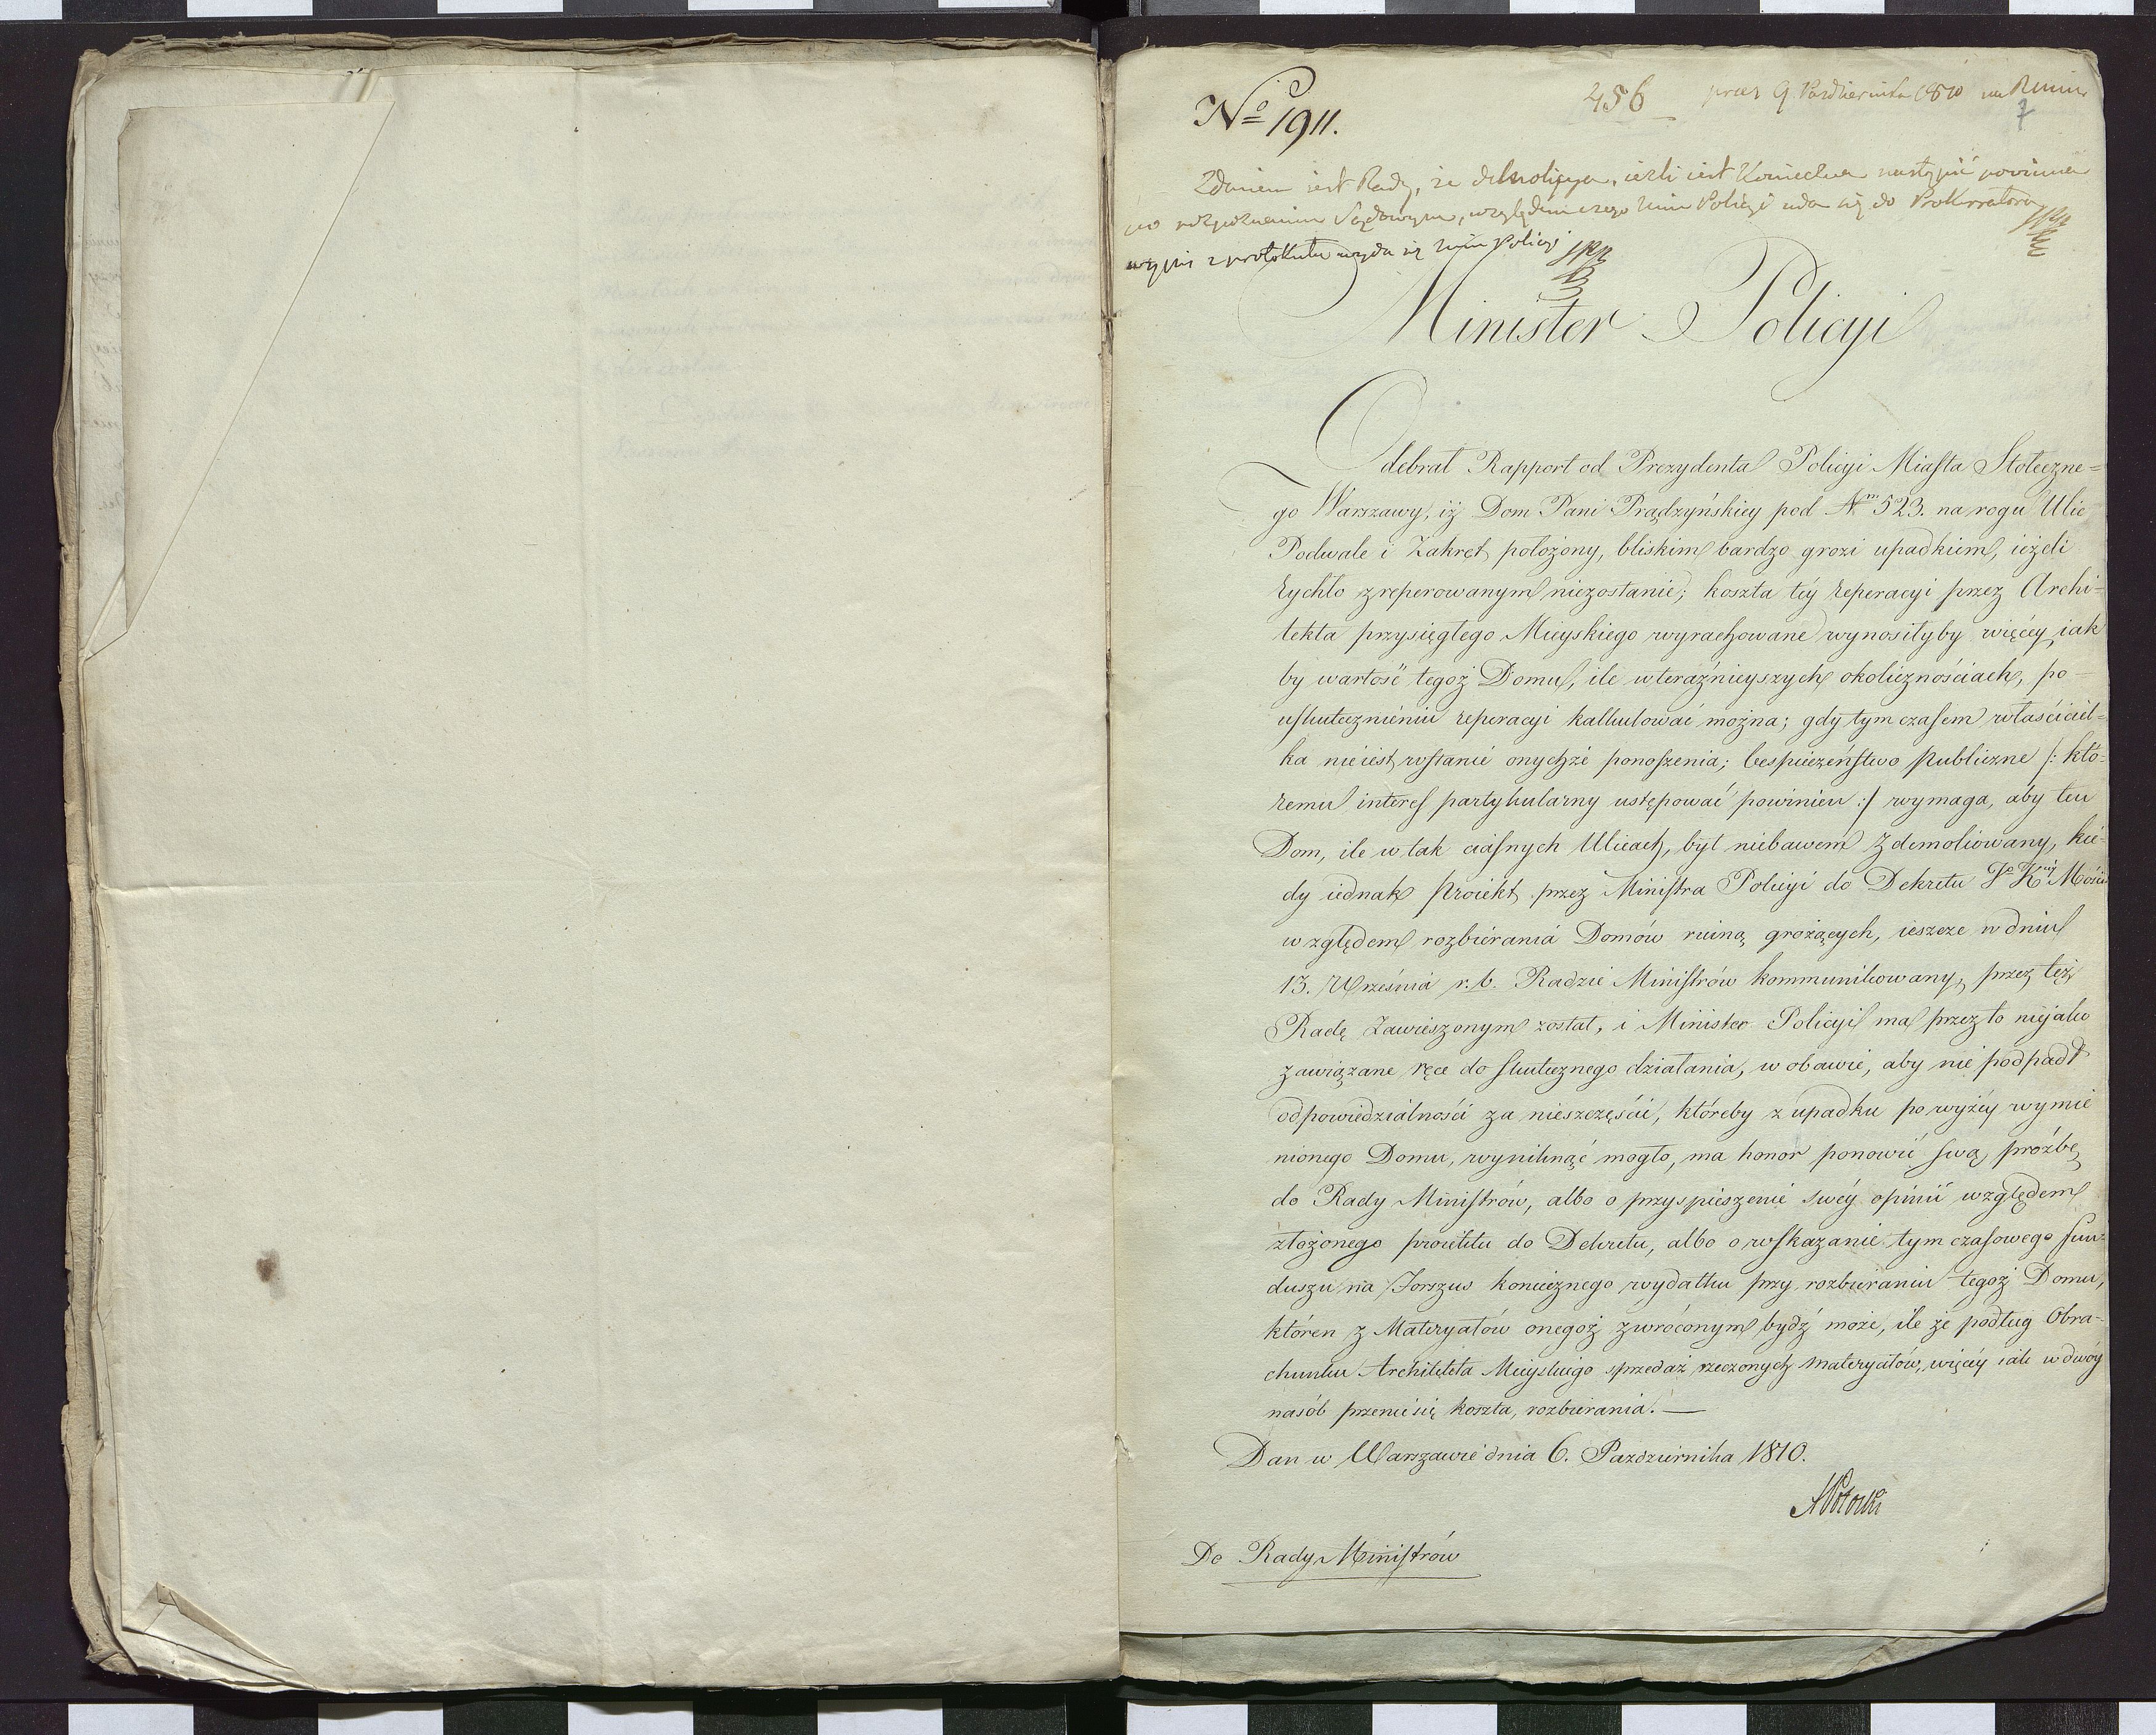 No 1911.
456 prez 9 Października 1810 na Rmin
7
Zdaniem iest Rady, że demolicya, ieżli iest konieczna nastąpić powinna
po rozpoznaniu Sądowym, względem czego Min Policyi uda się do Prokuratora
wypis z protokułu wyda się Min Policyi
Minister Policyi
Odebrał Rapport od Prezydenta Policyi Miasta Stołeczne=
go Warszawy, iż Dom Pani Prądzyńskiey pod Nrm 523. na rogu Ulic
Podwale i Zakręt położony, bliskim bardzo grozi upadkiem, ieżeli
rychło zreperowanym niezostanie; koszta téy reperacyi przez Archi=
tekta przysięgłego Mieyskiego wyrachowane wynosiłyby więcéy iak
by wartość tegoż Domu, ile wteraźnieyszych okolicznościach, po=
uskutecznieniu reperacyi kalkulować można; gdy tym czasem właściciel=
ka nieiest wstanie onychże ponoszenia; bespieczeństwo publiczne /: któ=
remu interes partykularny ustępować powinien :/ wymaga, aby ten
Dom, ile w tak ciasnych Ulicach, był niebawem zdemoliowany, kie=
dy iednak proiekt przez Ministra Policyi do Dekretu Jo Kréy Mości
względem rozbierania Domów ruiną grożących, ieszcze w dniu
13. Września r. b. Radzie Ministrów kommunikowany, przez też
Radę zawieszonym został, i Minister Policyi ma przez to nieiako
zawiązane ręce do skutecznego działania, w obawie, aby nie podpadł
odpowiedzialności za nieszczęście, któreby z upadku powyżéy wymie
nionego Domu, wyniknąć mogło, ma honor ponowić swą prożbę
do Rady Ministrów, albo o przyspieszenie swéy opinii względem
złożonego proiektu do Dekretu, albo o wskazanie tym czasowego fun=
duszu na Forszus koniecznego wydatku przy rozbieraniu tegoż Domu,
któren z Materyałów onegoż zwróconym bydź może, ile że podług Obra=
chunku Architekta Mieyskiego sprzedaż rzeczonych materyałów, więcéy iak w dwóy
nasób przeniesię koszta, rozbierania. —
Dan w Warszawie dnia 6. Października 1810.
APotocki
Do Rady Ministrów